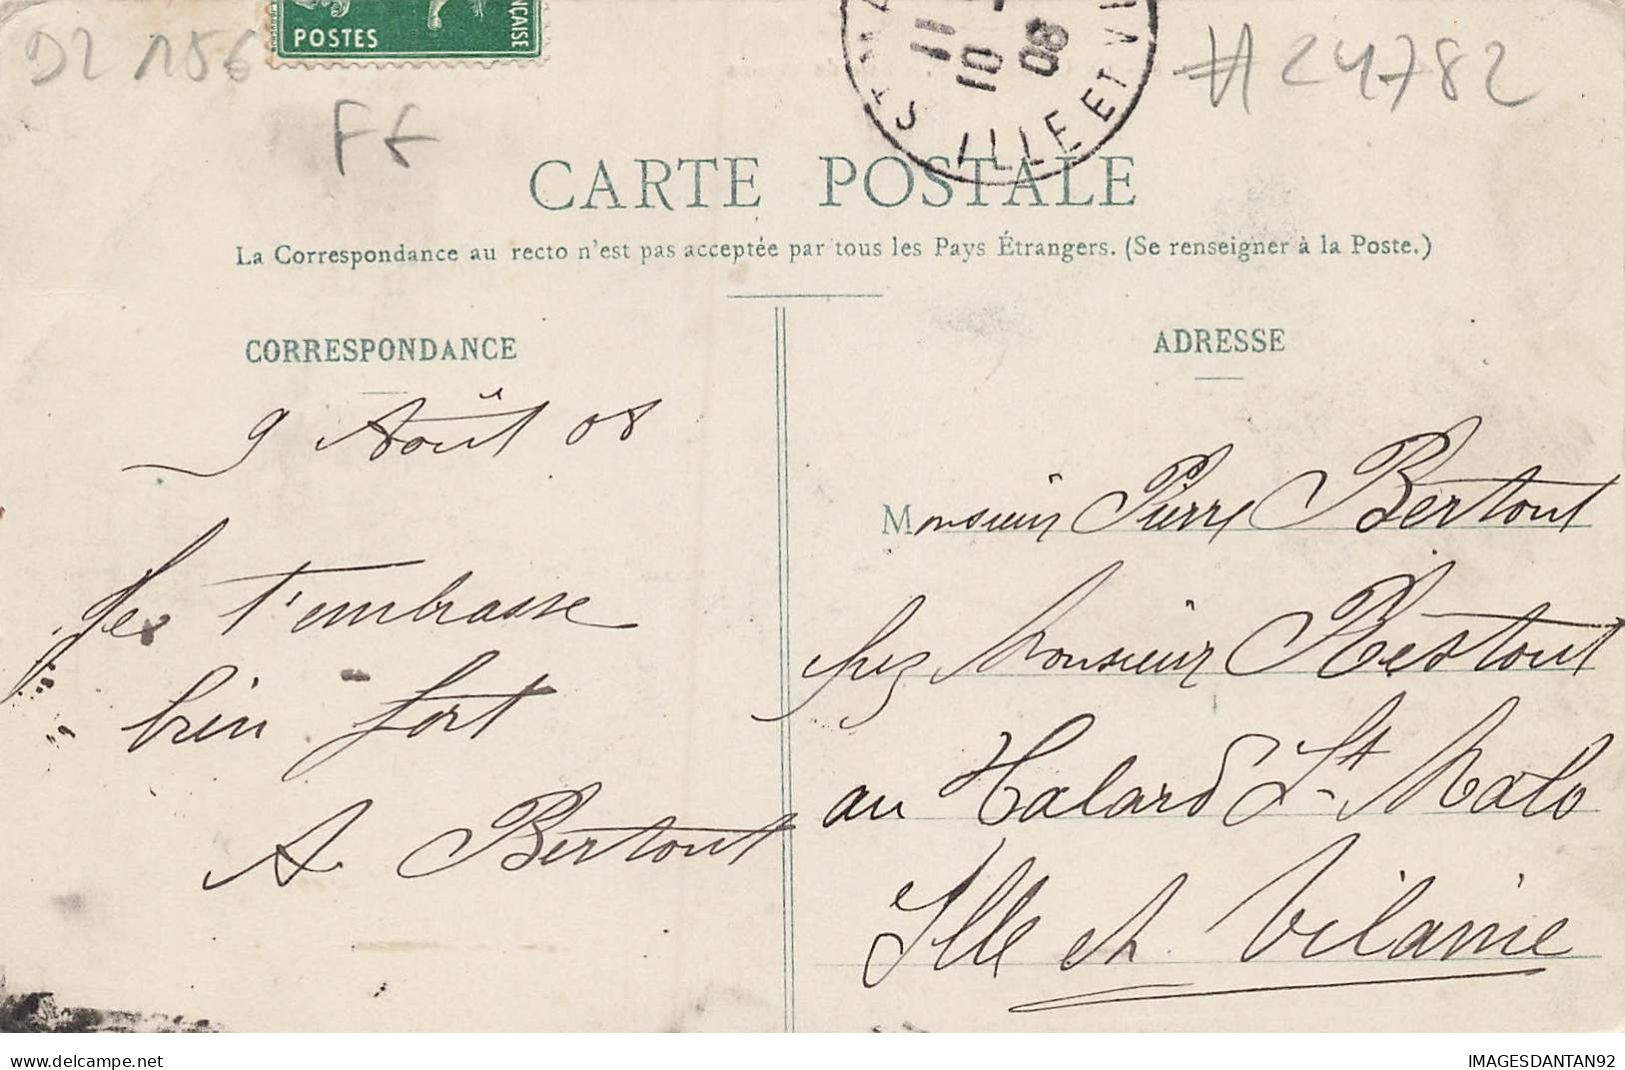 D2 156
POSTES
ÇAISE
11
10
08
ST MA
ILLE ET VI
#24782
FF
CARTE POSTALE
La Correspondance au recto n'est pas acceptée par tous les Pays Étrangers. (Se renseigner à la Poste.)
CORRESPONDANCE
9 Août 08
Je t'embrasse
bien fort
A Bertout
ADRESSE
Monsieur Pierre Bertout
chez Monsieur Restout
au Halard St Malo
Ille et Vilaine
www.delcampe.net
IMAGESDANTAN92